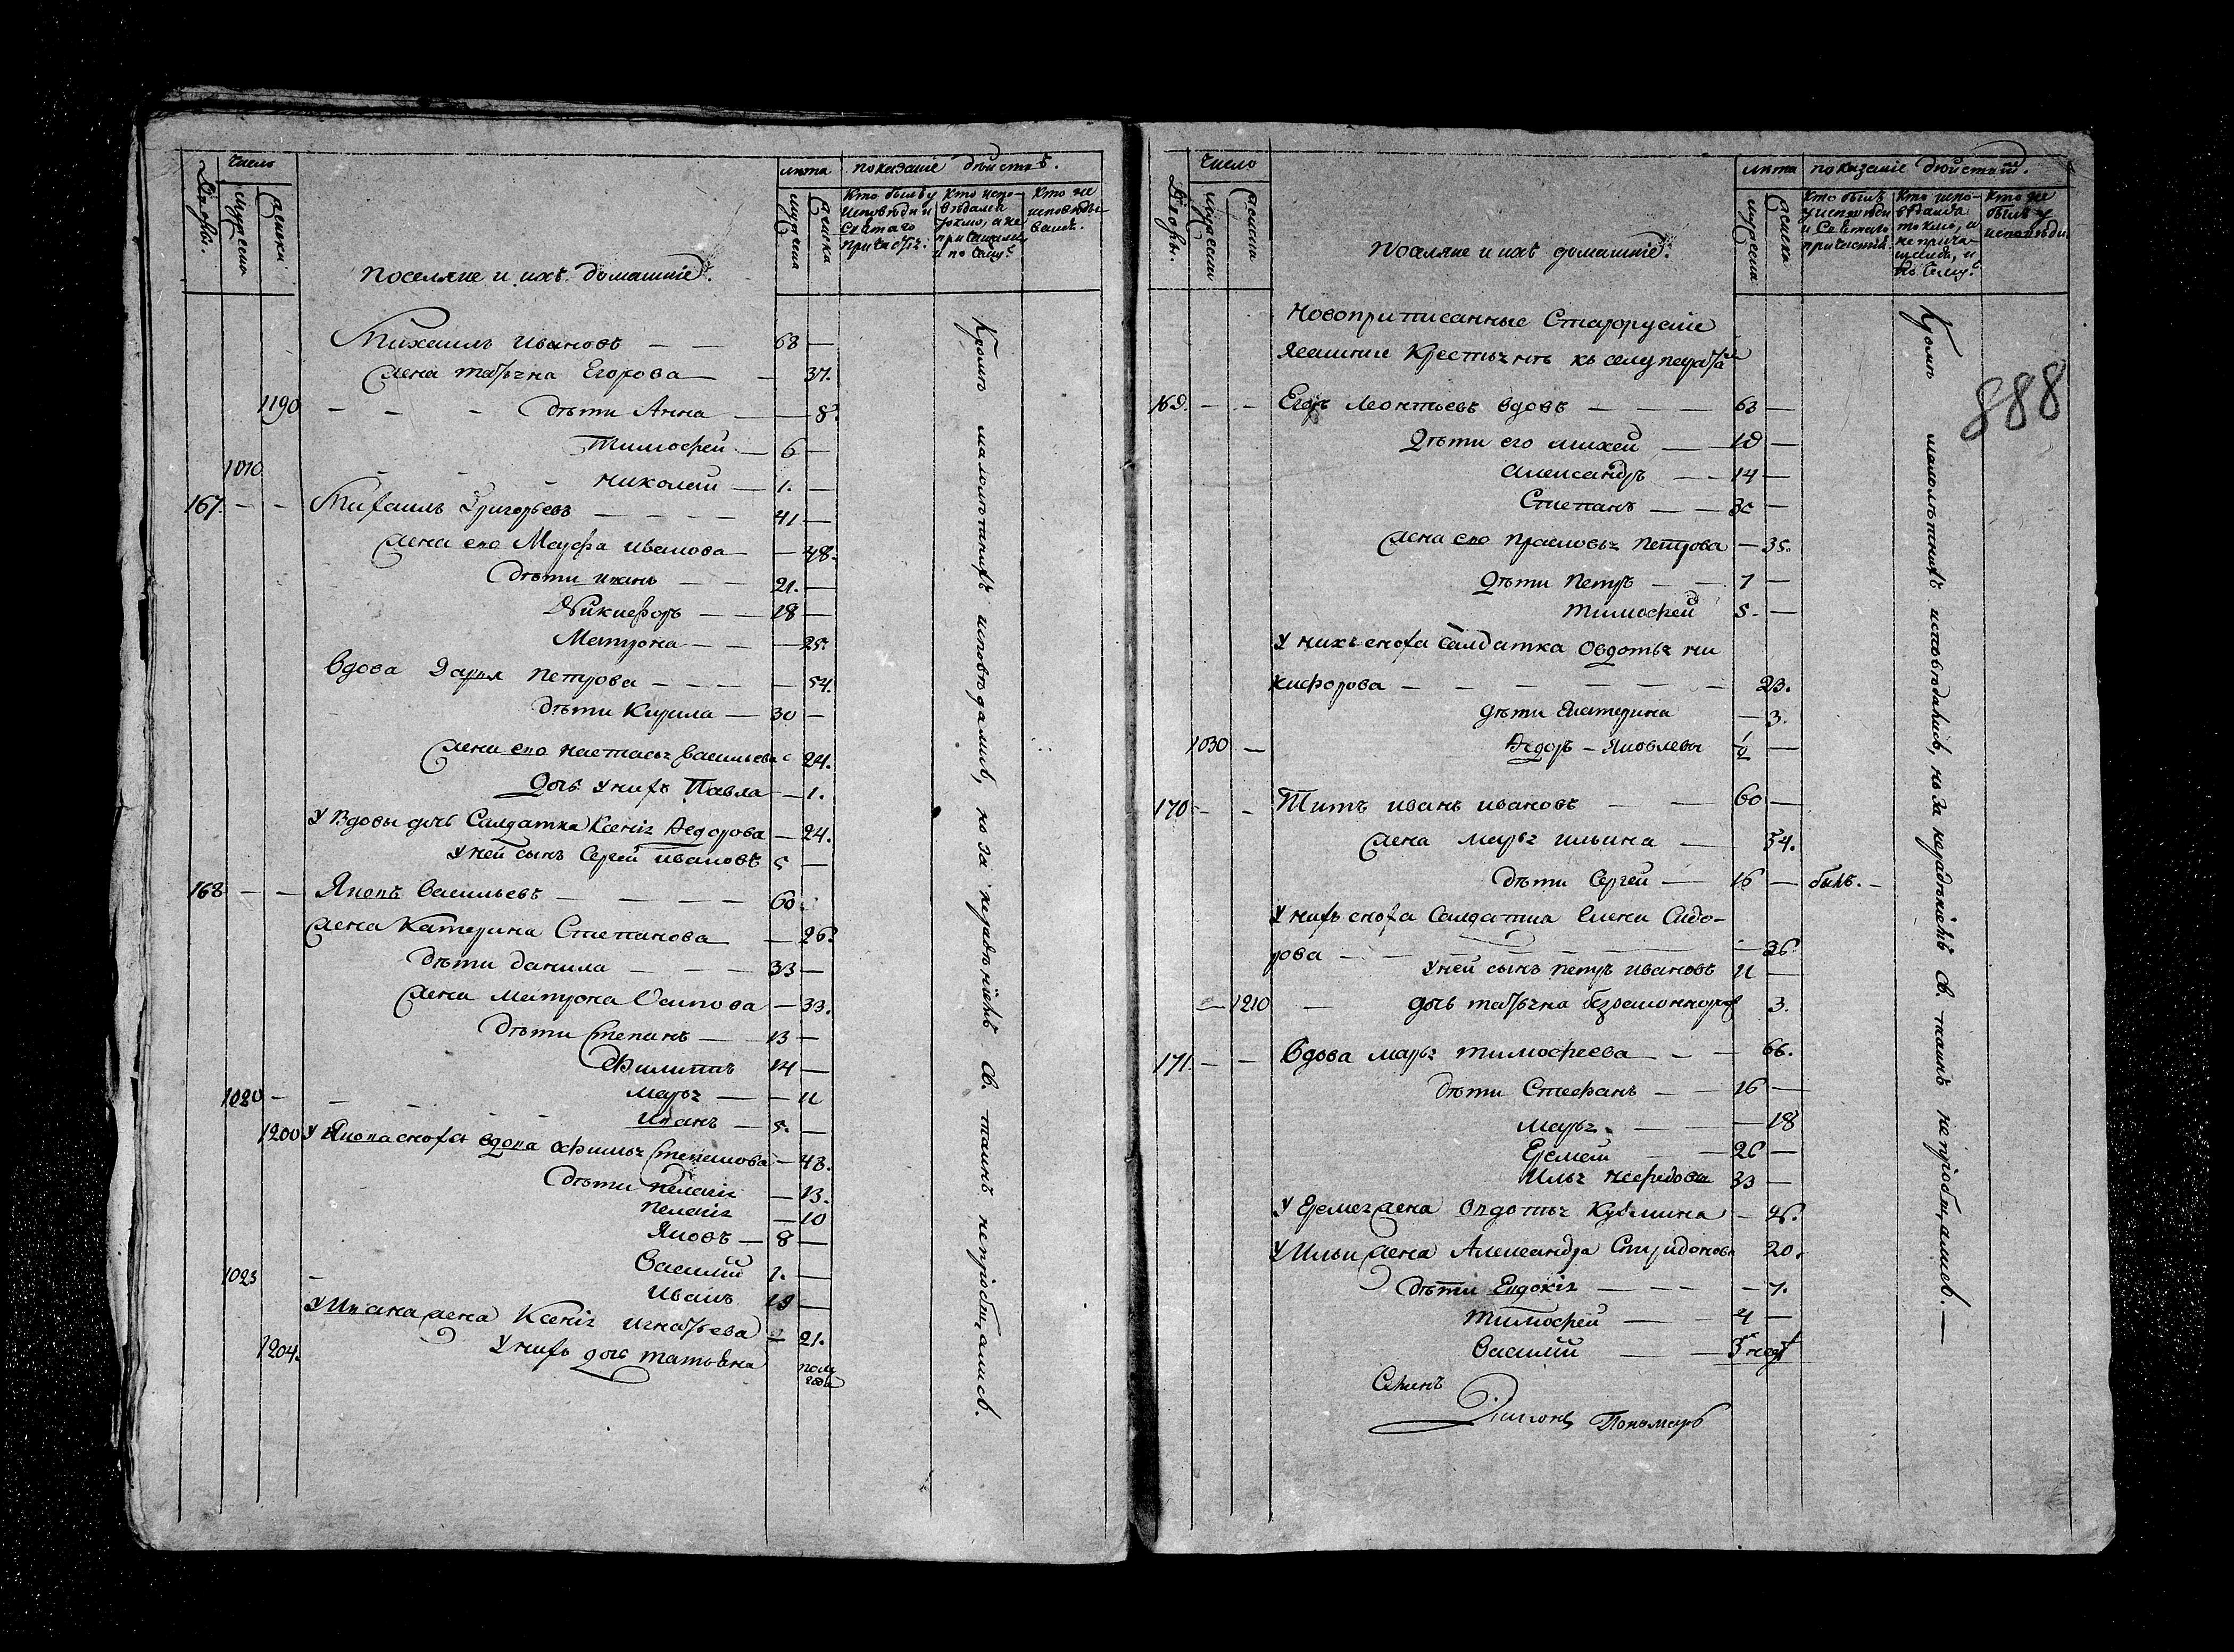 Дворы.
Число
мужеска
женска
Поселяне и ихъ домашніе.
лѣта
мужеска
женска
показаніе дѣйствъ.
Кто былъ у исповѣди и святаго причастія.
Кто исповѣдался токмо, а не причащался и по чему?
Кто не исповѣдывался.
Михаилъ Ивановъ — — 68 —
Жена Татьяна Егорова — — 37.
1190 — — — дѣти Анна — — 8.
Тимофей — 6 —
1010 — — — Николай — 1. —
167. — — Михаилъ Григорьевъ — — — 41 —
Жена его Марфа Иванова — — 48.
дѣти Иванъ — — 21. —
Никифоръ — — 18 —
Матрона — — — 25.
Вдова Дарья Петрова — — — — 54.
дѣти Кирила — 30 —
Жена его Настасья Васильева 24.
Дочь у нихъ Павла — — 1.
У Вдовы дочь Салдатка Ксенія Ѳедорова — 24.
У ней сынъ Сергей Ивановъ 5 —
168 — — Яковъ Васильевъ — — — — 60.
Жена Катерина Степанова — 26.
дѣти Данила — — — 33 —
Жена Матрона Осипова — 33.
дѣти Степанъ — — 13 —
Филиппъ 14 —
1020 — — — Марья — — 11
Иванъ — 5. —
1200 У Якова сноха вдова Афимья Степанова — 48.
дѣти Пелагія — 13.
Пелагія — 10
Яковъ — 8 —
Василий 1. —
1023 — Иванъ 19 —
У Ивана жена Ксенія Игнатьева — 21.
1204. У нихъ дочь Татьяна пол года
Кромѣ малолѣтнихъ исповѣдались, но за нерадѣніемъ Св. таинъ непріобщались.
Дворы.
Число
мужеска
женска
Поселяне и ихъ домашніе.
лѣта
мужеска
женска
показаніе дѣйствій.
Кто былъ у исповѣди и Святаго причастія.
Кто исповѣдался токмо, а не причащался, и по чему?
Кто не былъ у исповѣди
888
Новоприписанные Старорускіе
Ясашніе Крестьянѣ къ селу
169. — — Егоръ Леонтьевъ вдовъ — — — 63 —
Дѣти его Михей — 18 —
Александръ — — 14 —
Степанъ — — 30 —
Жена его Прасковья Петрова — 35.
Дѣти Петръ — — 7 —
Тимофей 5. —
У нихъ сноха Салдатка Овдотья Ни
кифорова — — — — — — 23.
дѣти Екатерина — 3.
1030 — Ѳедоръ — Яковлевы ½ —
170 — — Титъ Иванъ Ивановъ — — 60 —
Жена Марья Ильина — 54.
дѣти Сергей — 16 — былъ. —
У нихъ сноха Салдатка Елена Сидо-
рова — — — — — 36
У ней сынъ Петръ Ивановъ 11 —
— 1210 — дочь Татьяна 3.
171. — — Вдова Марья Тимофеева — — — 66.
дѣти Стефанъ — — 16 —
Марья — — — 18
Еремей — — 26 —
Илья 33 —
У Еремея жена Овдотья Кузмина — 26.
У Ильи жена Александра Спиридонова 20.
дѣти Евдокія — — — — 7.
Тимофей — — 4 —
Василий — — 3 нед.
Семенъ
Пономарь
Кромѣ малолѣтнихъ исповѣдались, но за нерадѣніемъ Св. таинъ непріобщались. —